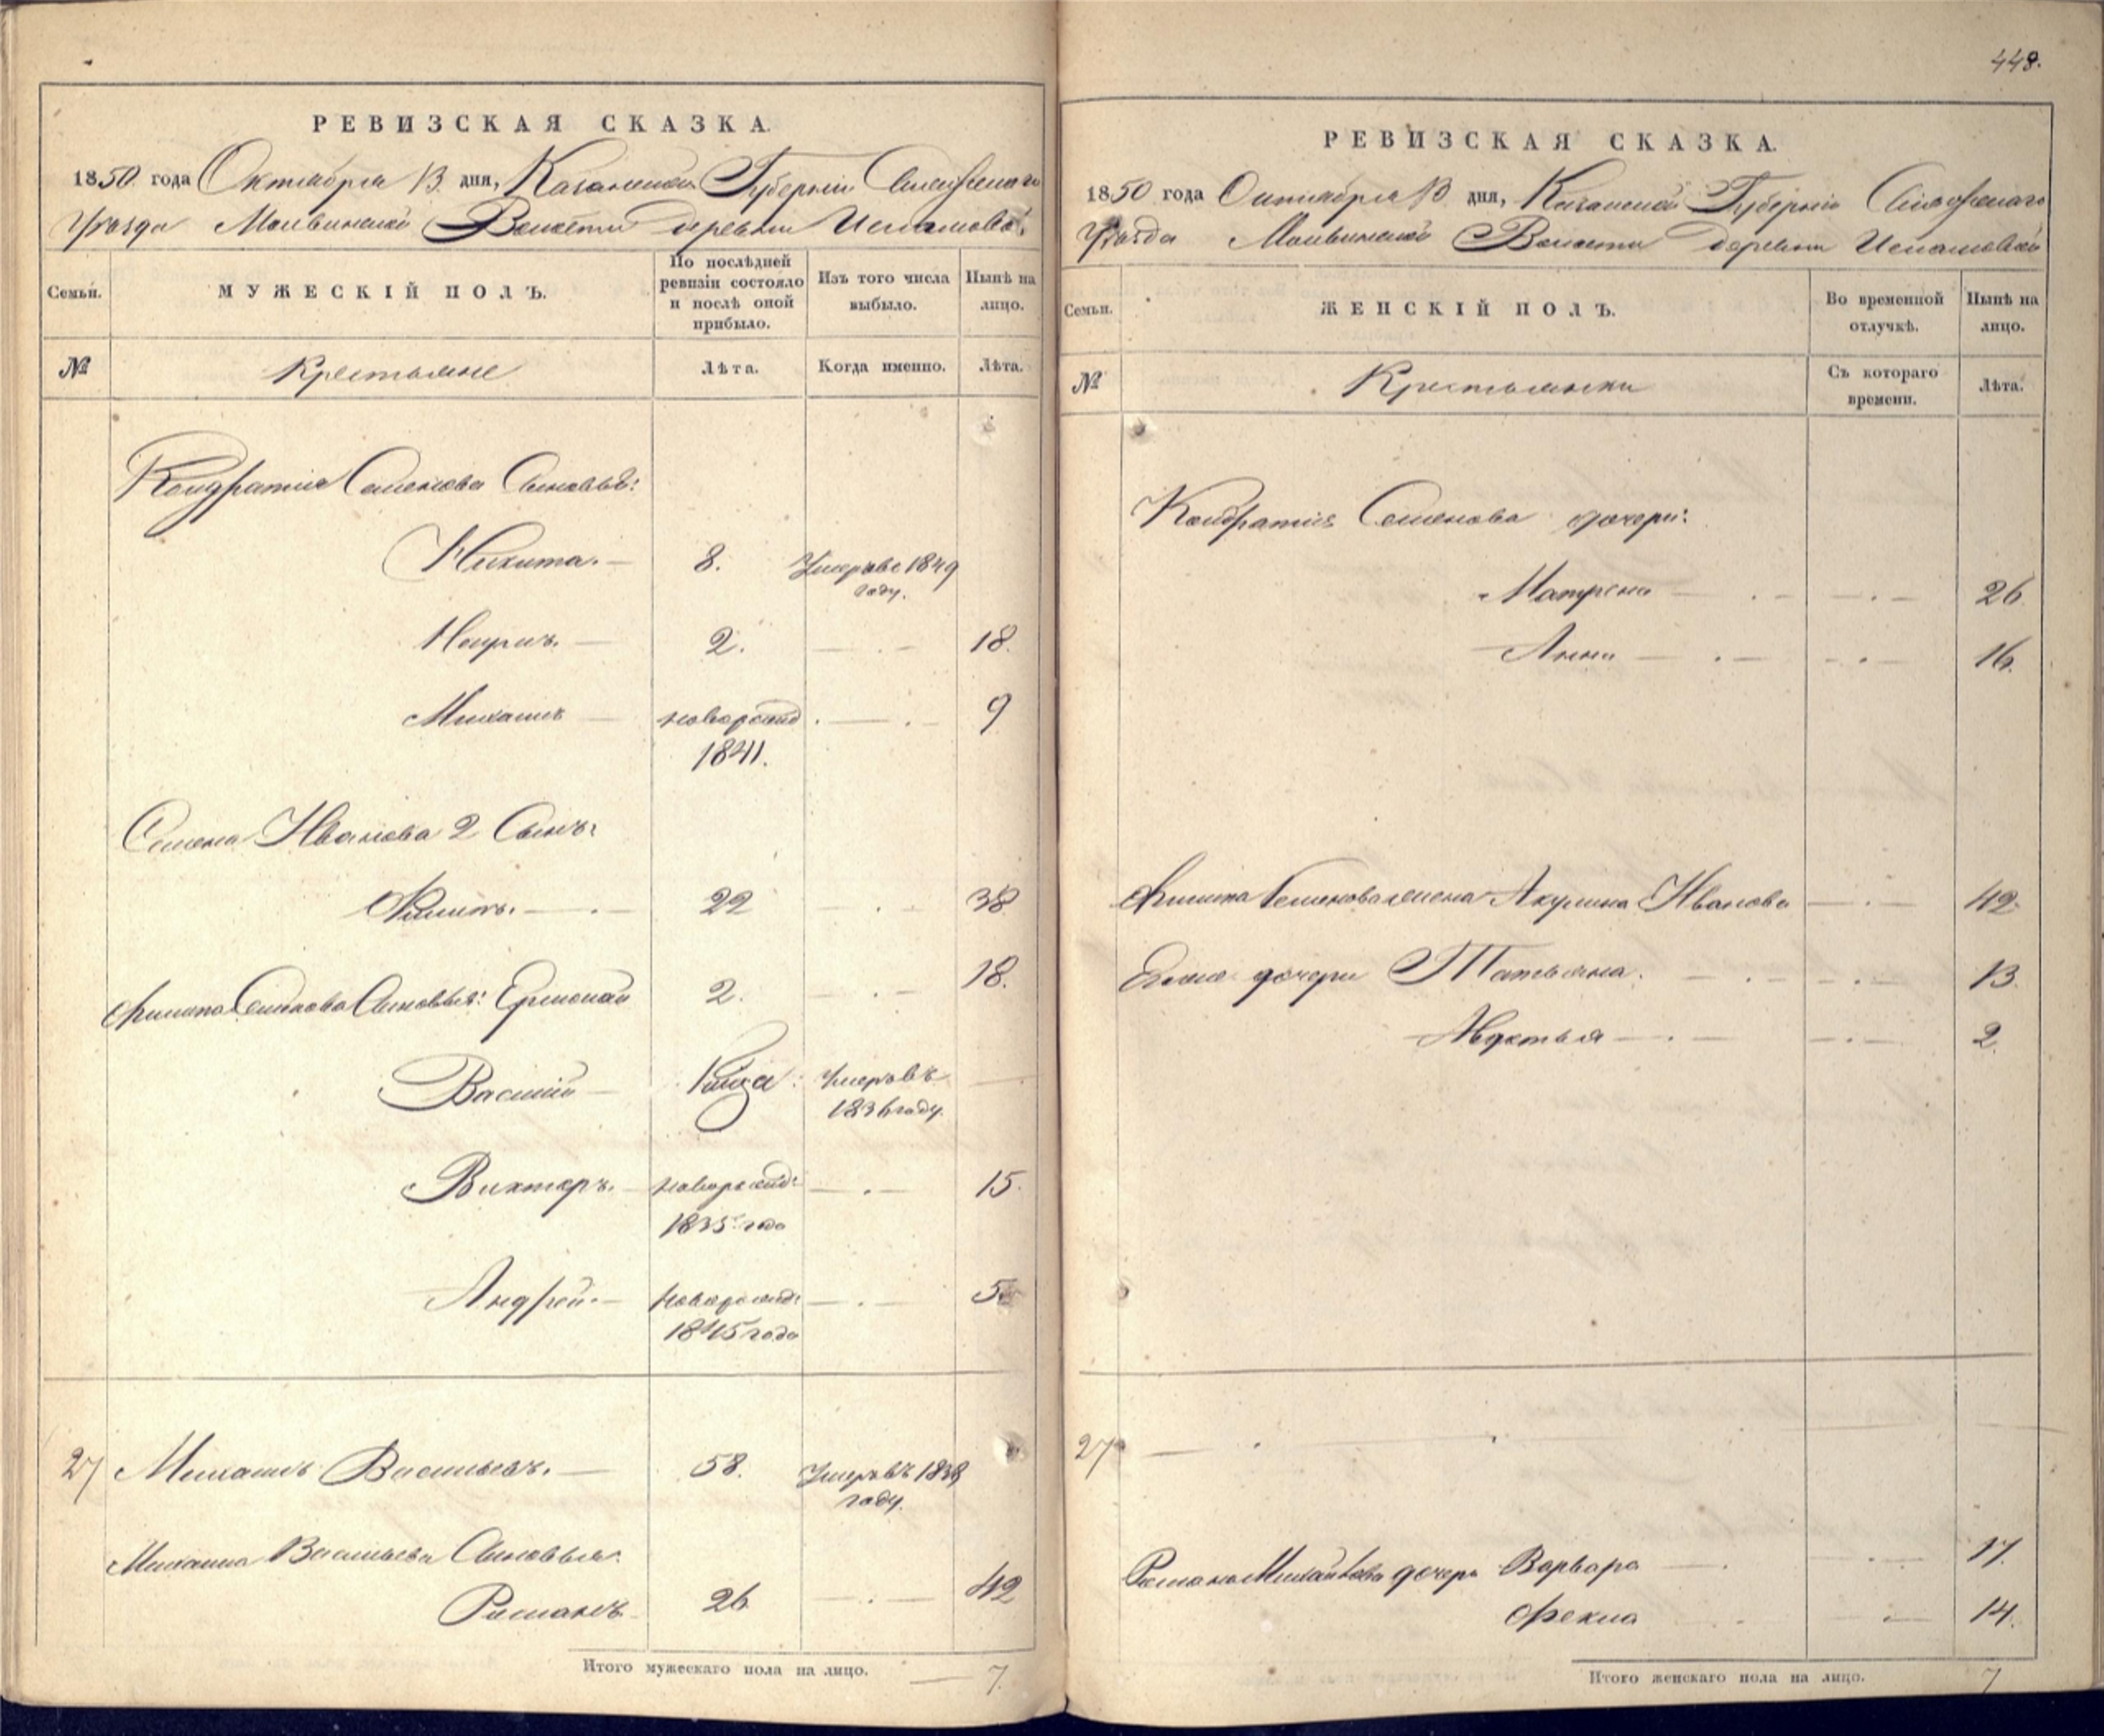 448.
РЕВИЗСКАЯ СКАЗКА.
1850 года Октября 13 дня, Казанской Губернии
Уезда Волости деревни
Семьи. МУЖЕСКІЙ ПОЛЪ. По послѣдней ревизіи состояло и послѣ оной прибыло. Изъ того числа выбыло. Нынѣ на лицо.
№ Крестьяне Лѣта. Когда именно. Лѣта.
Кондратия Семенова Сыновья:
Никита. 8. Умеръ въ 1849
году.
2. 18.
Михаилъ новорожд. 9
1841.
Семена Иванова 2 Сынъ:
Филипъ. 22 38
Филипа Семенова Сыновья: Ермолай 2. 18.
Василий Умеръ въ
1836 году.
Викторъ. новорожд: 15.
1835 года
Андрей. новорожд: 5
1845 года
27 Михаилъ Васильевъ. 58. Умеръ въ 1838
году.
Михаила Васильева Сыновья:
Романъ 26 42
Итого мужескаго пола на лицо. 7.
РЕВИЗСКАЯ СКАЗКА.
1850 года Октября 13 дня, Казанской Губерніи
Уезда Волости деревни
Семьи. ЖЕНСКІЙ ПОЛЪ. Во временной отлучкѣ. Нынѣ на лицо.
№ Крестьянки Съ котораго времени. Лѣта.
Кондратия Семенова дочери:
Матрена 26
Анна 16.
Филипа Семенова жена Акулина Иванова 42
дочери Татьяна. 13.
Авдотья 2.
27
Романа Михайлова дочери Варвара 17.
Фекла 14.
Итого женскаго пола на лицо. 7